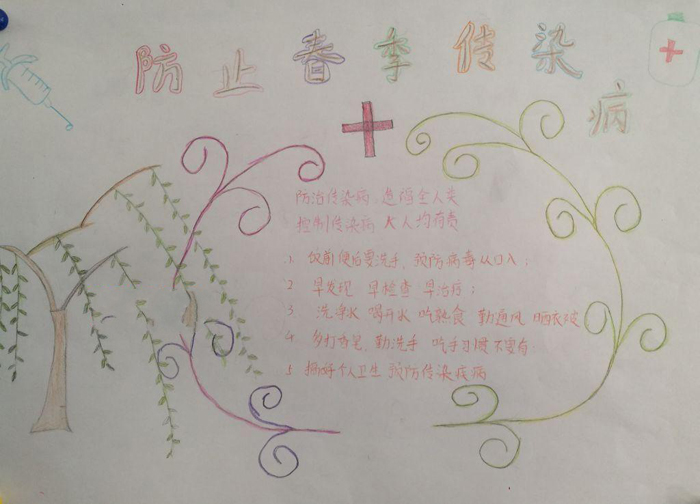 防止春季传染病
防治传染病 造福全人类
控制传染病 人人均有责
1. 饭前便后要洗手, 预防病毒从口入;
2 早发现 早检查 早治疗;
3 洗净水 喝开水 吃熟食 勤通风 晒衣被
4. 多打 勤洗手 吃手习惯不要有
5. 搞好个人卫生 预防传染疾病